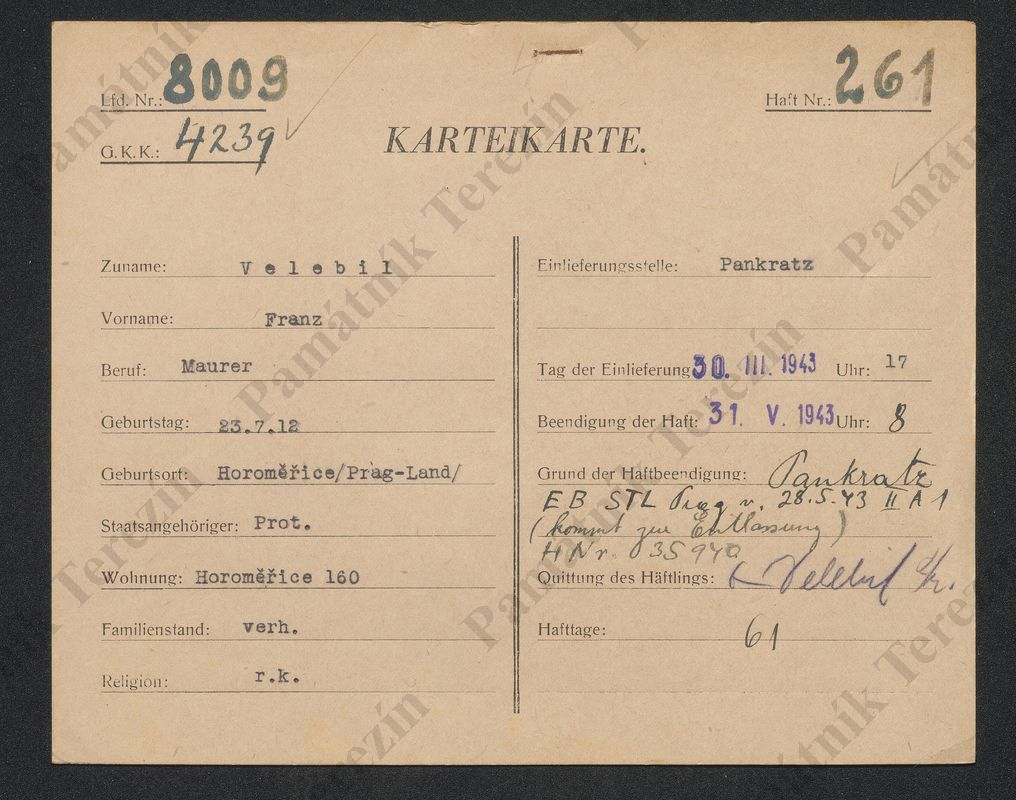 Lfd. Nr.: 8009
Haft Nr.: 261
G.K.K.: 4239
KARTEIKARTE.
Zuname: Velebil
Vorname: Franz
Beruf: Maurer
Geburtstag: 23.7.12
Geburtsort: Horoměřice/Prag-Land/
Staatsangehöriger: Prot.
Wohnung: Horoměřice 160
Familienstand: verh.
Religion: r.k.
Einlieferungsstelle: Pankratz
Tag der Einlieferung 30. III. 1943 Uhr: 17
Beendigung der Haft: 31. V. 1943 Uhr: 8
Grund der Haftbeendigung: Pankratz
EB STL Prag v. 28.5.43 II A 1
(kommt zur Entlassung)
HNr. 035940
Quittung des Häftlings: Velebil Fr.
Hafttage: 61
Památník Terezín